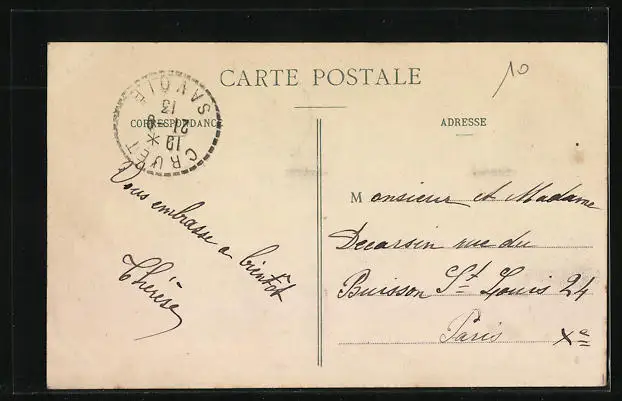 10
CARTE POSTALE
CORRESPONDANCE
ADRESSE
CRUET
19
21 - 8
13
SAVOIE
Vous embrasse a bientôt
Thérèse
Monsieur et Madame
Decarsin rue du
Buisson St Louis 24
Paris Xe